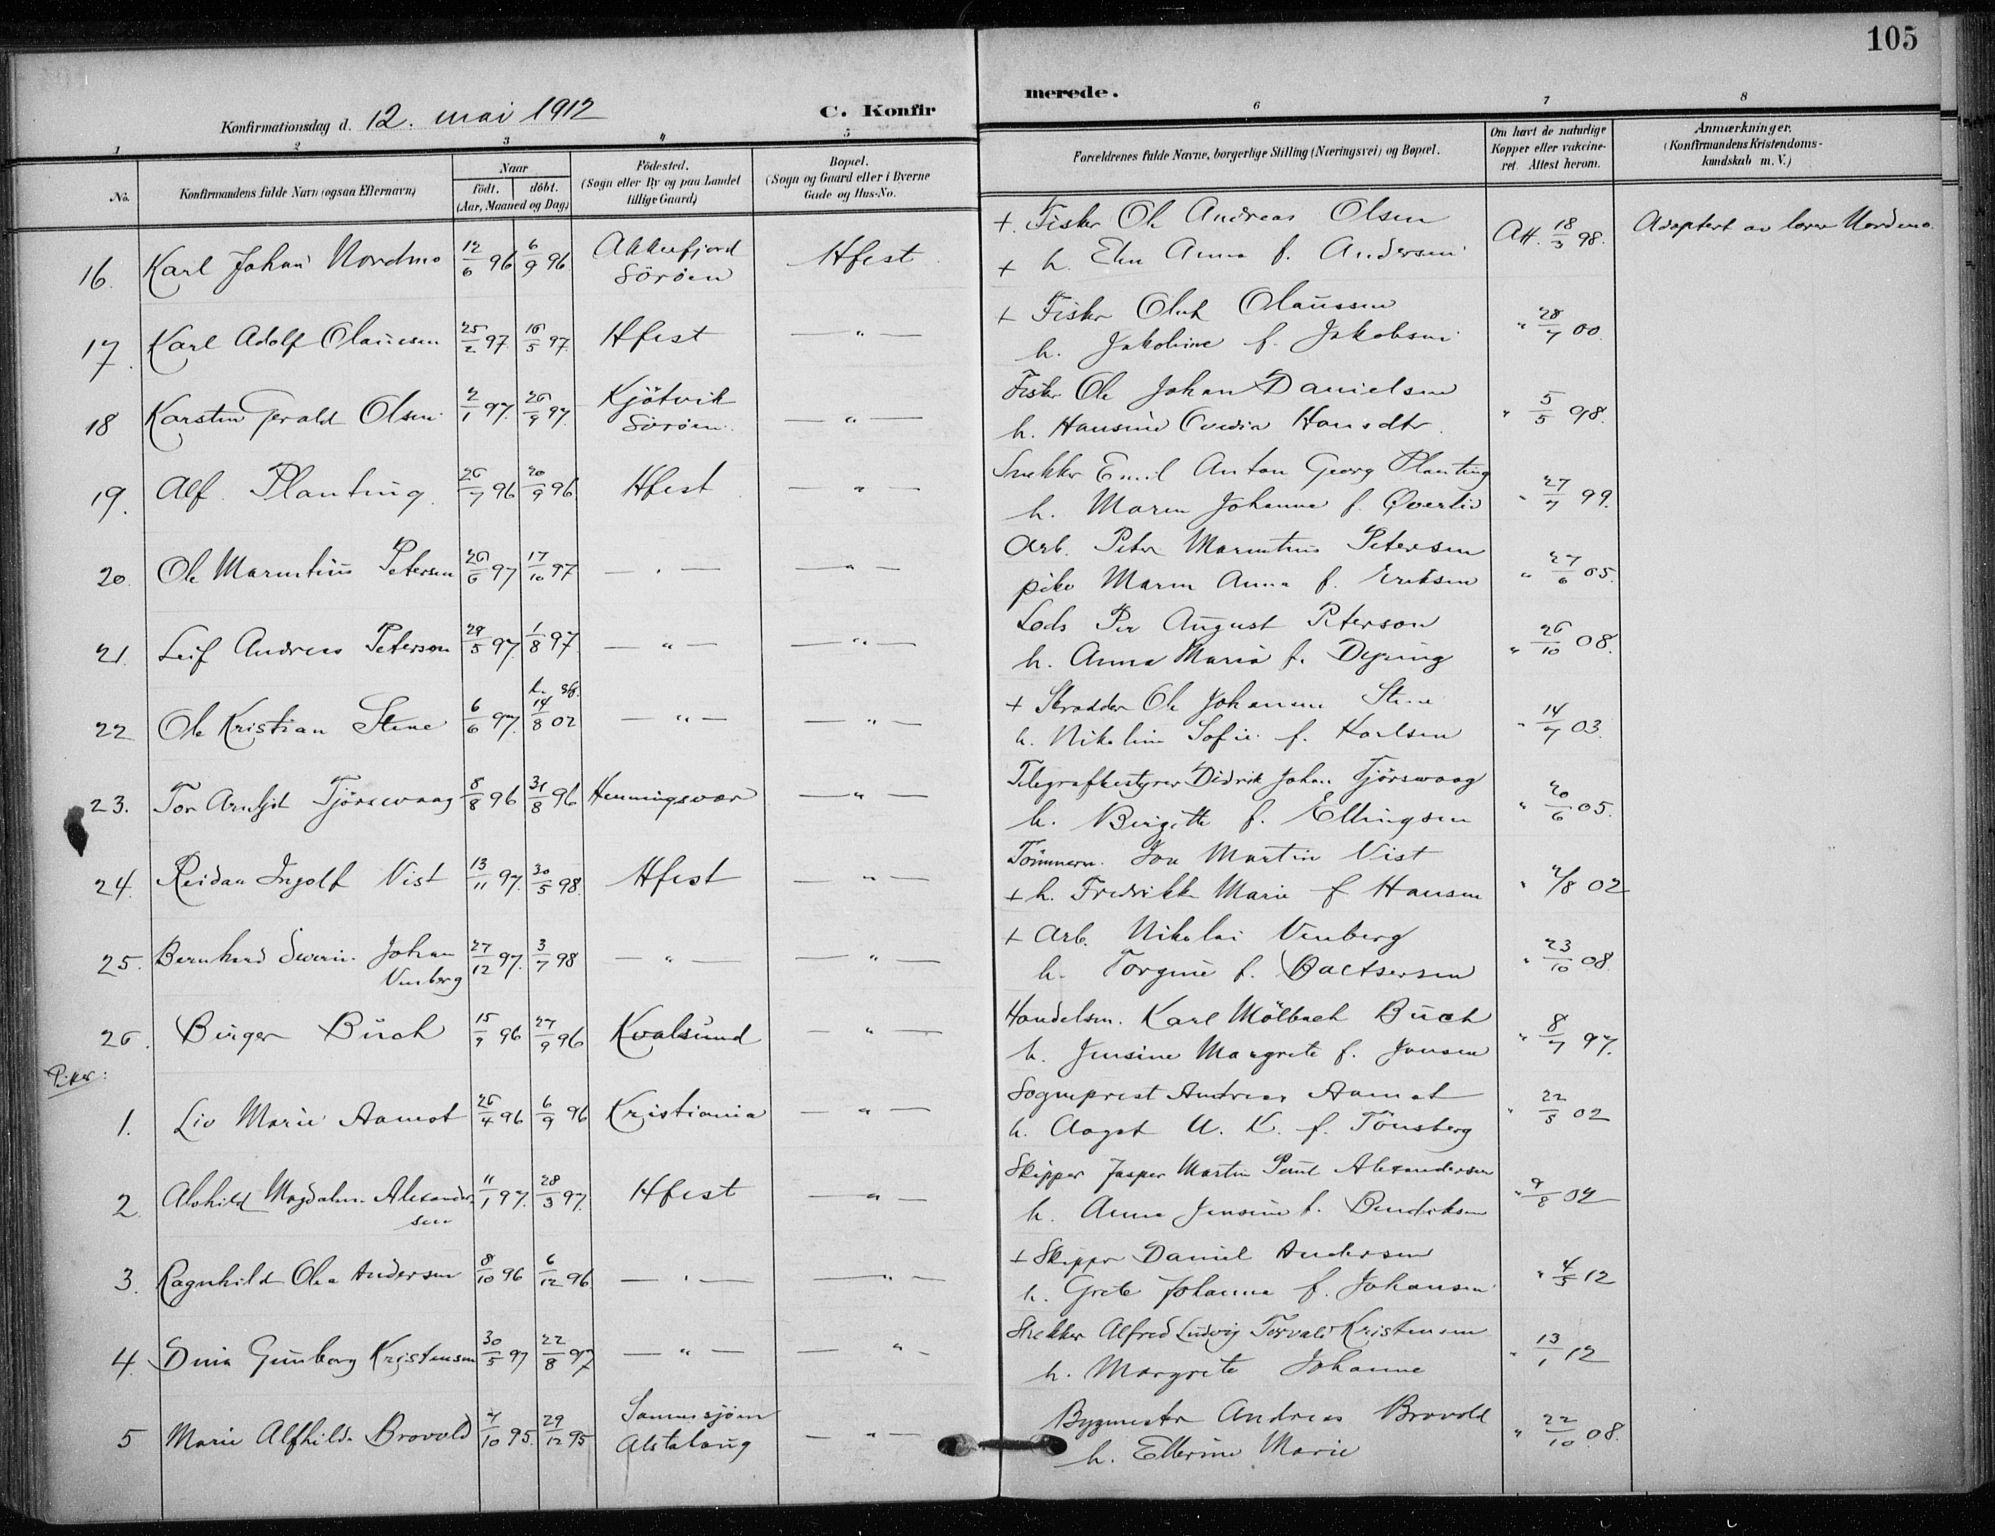 105
Konfirmationsdag d. 12. mai 1912
C. Konfirmerede.
1 2 3 4 5 6 7 8
No.
Konfirmandens fulde Navn (ogsaa Efternavn)
Naar
födt. döbt.
(Aar, Maaned og Dag)
Födested.
(Sogn eller By og paa Landet
tillige Gaard)
Bopæl.
(Sogn og Gaard eller i Byerne
Gade og Hus-No.
Forældrenes fulde Navne, borgerlige Stilling (Næringsvei) og Bopæl.
Om havt de naturlige
Kopper eller vaccine-
ret. Attest herom.
Anmærkninger.
(Konfirmandens Kristendoms-
kundskab m. V.)
16. Karl Johan Nordmo 12/6 96 6/9 96 Akkerfjord Sörøen Hfest
+ Fisker Ole Andreas Olsen Att. 18/3 98. Adoptert av lærer Nordmo.
+ h. Elen Anna f. Andersen
17. Karl Adolf Olaussen 25/2 97. 16/5 97. Hfest — " —
+ Fisker Oluf Olaussen " 28/7 00.
h. Jakobine f. Jakobsen
18 Karsten Gerald Olsen 2/1 97. 26/9 97. Kjötvik Sörøen. — " —
Fisker Ole Johan Danielsen " 5/5 98.
h. Hansine Hansdtr.
19. Alf Planting 26/7 96 20/9 96 Hfest — " —
Snekker Emil Anton Georg Planting " 27/7 99.
h. Maren Johanna f. Qverlid
20. Ole Marentius Petersen 26/6 97 17/10 97 — " — — " —
Arb. Peter Marentius Petersen " 27/6 05.
pike Maren Anna f. Eriksen
21. Leif Andreas Peterson 29/5 97. 1/8 97. — " — — " —
Lods Per August Peterson " 26/10 08.
h. Anna Maria f. Dyring
22 Ole Kristian Stene 6/6 97. 14/8 02 — " — — " —
+ Skrædder Ole Johannes Stene " 14/7 03.
h. Nikoline Sofie f. Karlsen
23. Tor Arnljot Tjörswaag 8/8 96 31/8 96 Henningsvær — " —
Telegrafbestyrer Didrik Johan Tjörswaag " 20/6 05.
h. Birgitte f. Ellingsen
24. Reidar Ingolf Vist 13/11 97. 30/5 98. Hfest — " —
Tömmerm. Jon Martin Vist " 2/8 02
+ h. Fredrikke Marie f Hansen
25. Bernhard Severin Johan Venberg 27/12 97. 3/7 98 — " — — " —
+ Arb. Nikolai Venberg " 23/10 08.
h. Torgine f. Baltsersen
26. Birger Buch 15/7 96 27/9 96 Kvalsund — " —
Handelsm. Karl Mölbach Buch " 8/7 97.
h. Jensine Margrete f. Jensen
Piker:
1. Liv Marie Aamot 26/4 96 6/9 96 Kristiania — " —
Sogneprest Andreas Aamot " 22/5 02
h. Aagot U. K. f. Tönsberg
2. Alvhild Magdalene Alexandersen 11/1 97. 28/3 97. Hfest — " —
Skipper Jasper Martin Paul Alexandersen " 9/8 02
h. Anna Jensine f. Bendiksen
3. Ragnhild Olea Andersen 8/10 96 6/12 96. — " — — " —
+ Skipper Daniel Andersen " 4/5 12
h. Grete Johanna f. Johansen
4. Dina Gunborg Kristensen 30/5 97 22/8 97 — " — — " —
Snekker Alfred Ludvig Torvald Kristensen " 13/1 12
h. Margrete Johanne
5 Marie Alfhilde Brovold 7/10 95. 29/12 95 Sannessjöen Alstahaug — " —
Bygmester Andreas Brovold " 22/10 08.
h. Ellerine Marie